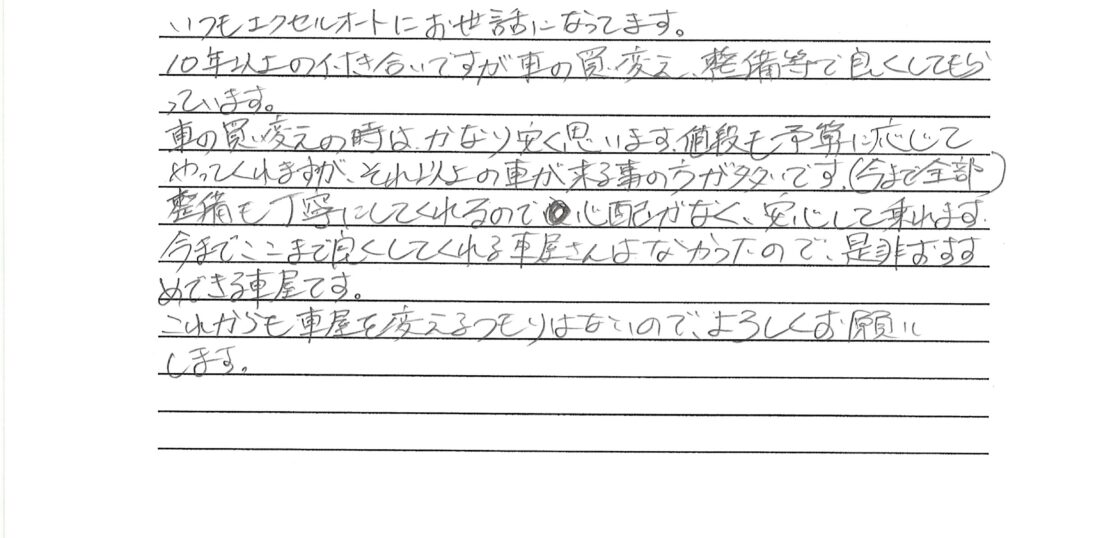 いつもエクセルオートにお世話になってます。
10年以上の付き合いですが車の買い変え、整備等で良くしてもら
っています。
車の買い変えの時は、かなり安く思います。値段も予算に応じて
やってくれますが、それ以上の車が来る事の方が多いです。(今まで全部)
整備も丁寧にしてくれるので心配がなく、安心して乗れます。
今までここまで良くしてくれる車屋さんはなかったので、是非おすす
めできる車屋です。
これからも車屋を変えるつもりはないので、よろしくお願い
します。